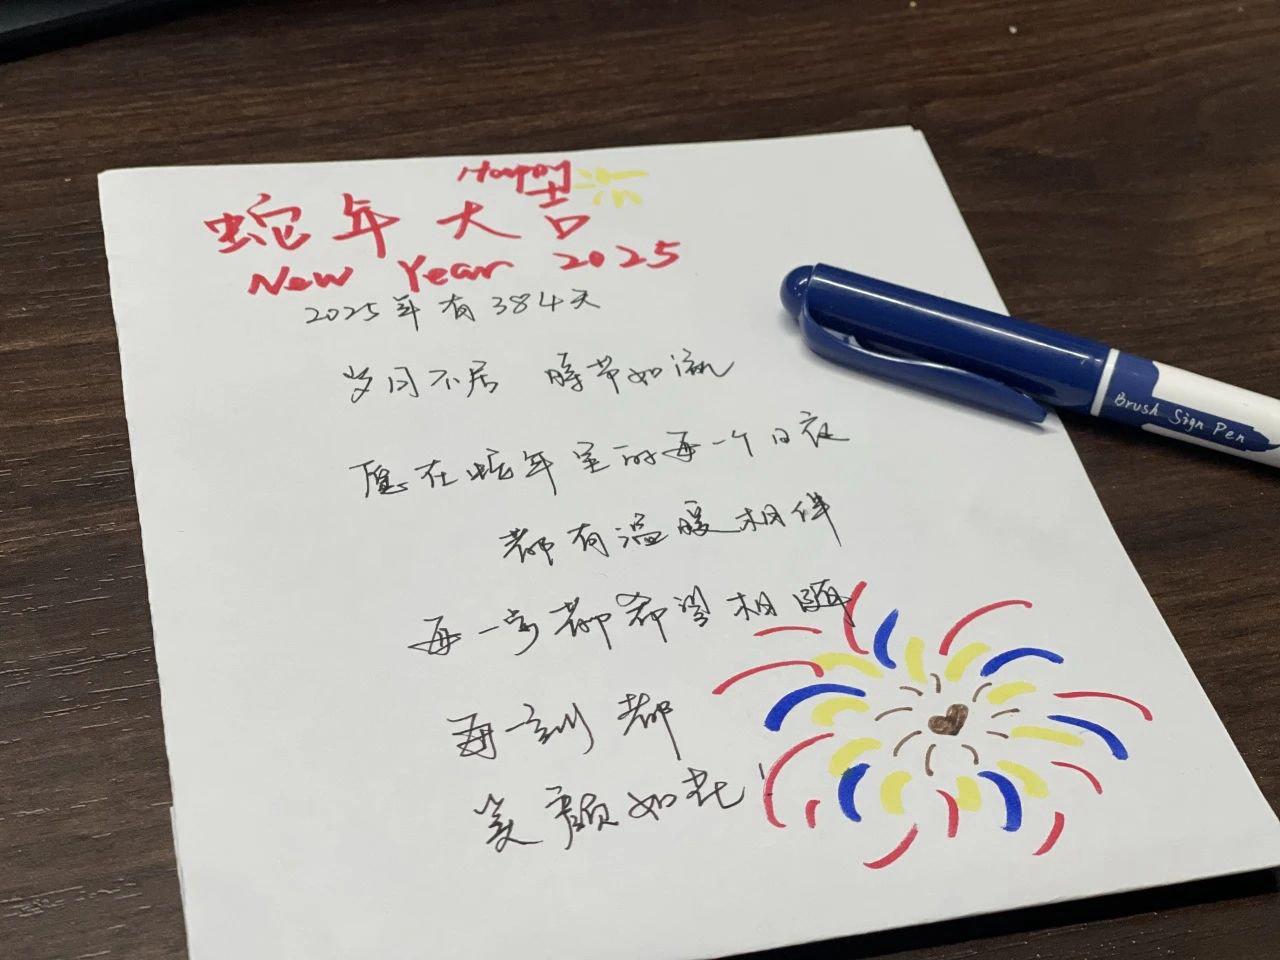 Happy
蛇年大吉
New Year 2025
2025年有384天
岁月不居 時节如流
愿在蛇年里的每一个日夜
都有温暖相伴
每一步都希望相随
每一刻都
笑颜如花!
Brush Sign Pen